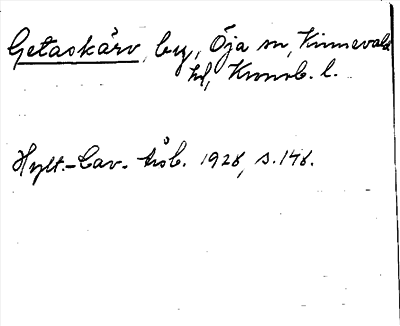 Getaskärv, by, Öja sn, Kinnevalds
hd, Kronob. l.
Hylt.-Cav. årsb. 1928, s. 148.